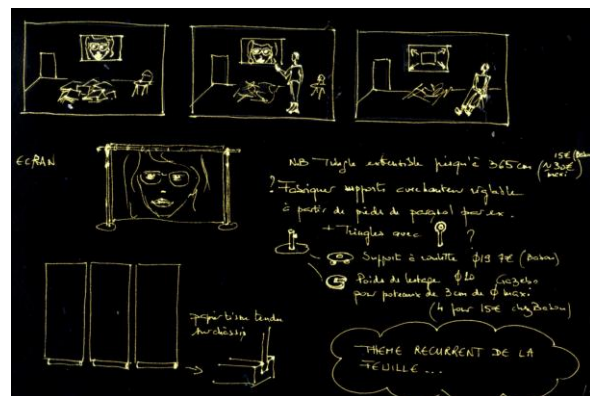 ECRAN
NB Tringle extensible jusqu'à 365 cm (≈ 30€ maxi)
15€ (Babou)
? Fabriquer supports avec hauteur réglable
à partir de pieds de parasol par ex.
+ Tringles avec ?
Support à roulette φ19 7€ (Babou)
Poids de lestage φ20 Gazebo
pour poteaux de 3 cm de φ maxi
(4 pour 15€ chez Babou)
papier/tissu tendu
sur châssis
THEME RECURRENT DE LA
FEUILLE...